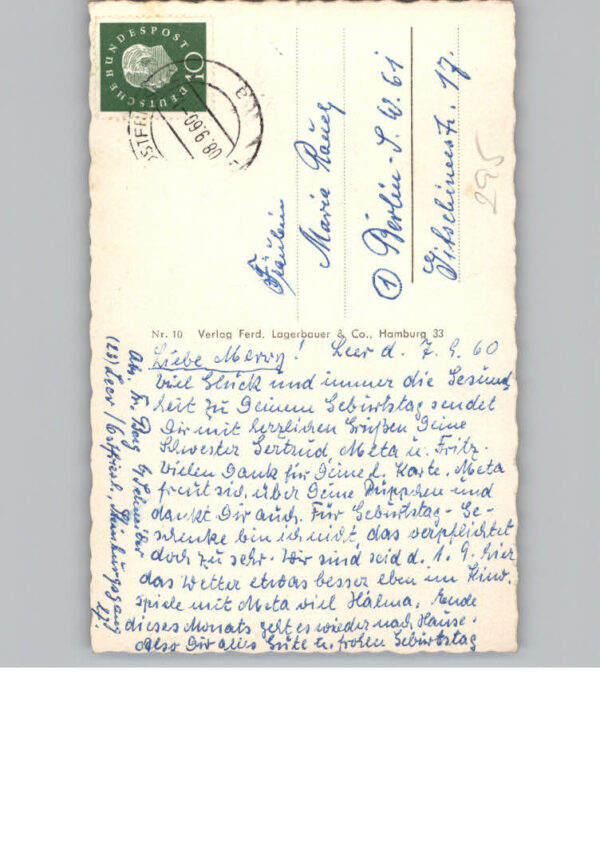 DEUTSCHE BUNDESPOST
10
OSTFR
08.9.60
Fräulein
Maria Rauch
① Berlin - S.W. 61
Gitschinerstr. 17.
295
Nr. 10 Verlag Ferd. Lagerbauer & Co., Hamburg 33
Liebe Merry! Leer d. 7.9.60
Viel Glück und immer die Gesund
heit zu Deinem Geburtstag sendet
Dir mit herzlichen Grüßen Deine
Schwester Gertrud, Meta u. Fritz.
Vielen Dank für Deine l. Karte. Meta
freut sich über Deine Püppchen und
dankt Dir auch. Für Geburtstag-Ge-
schenke bin ich nicht, das verpflichtet
doch zu sehr. Wir sind seid d. 1.9. hier
das Wetter etwas besser eben im
spiele mit Meta viel Halma. Ende
dieses Monats geht es wieder nach Hause.
Also Dir alles Gute u. frohen Geburtstag
Abs. Fr. Berg b/ Schneider
(23) Leer/Ostfriesl.